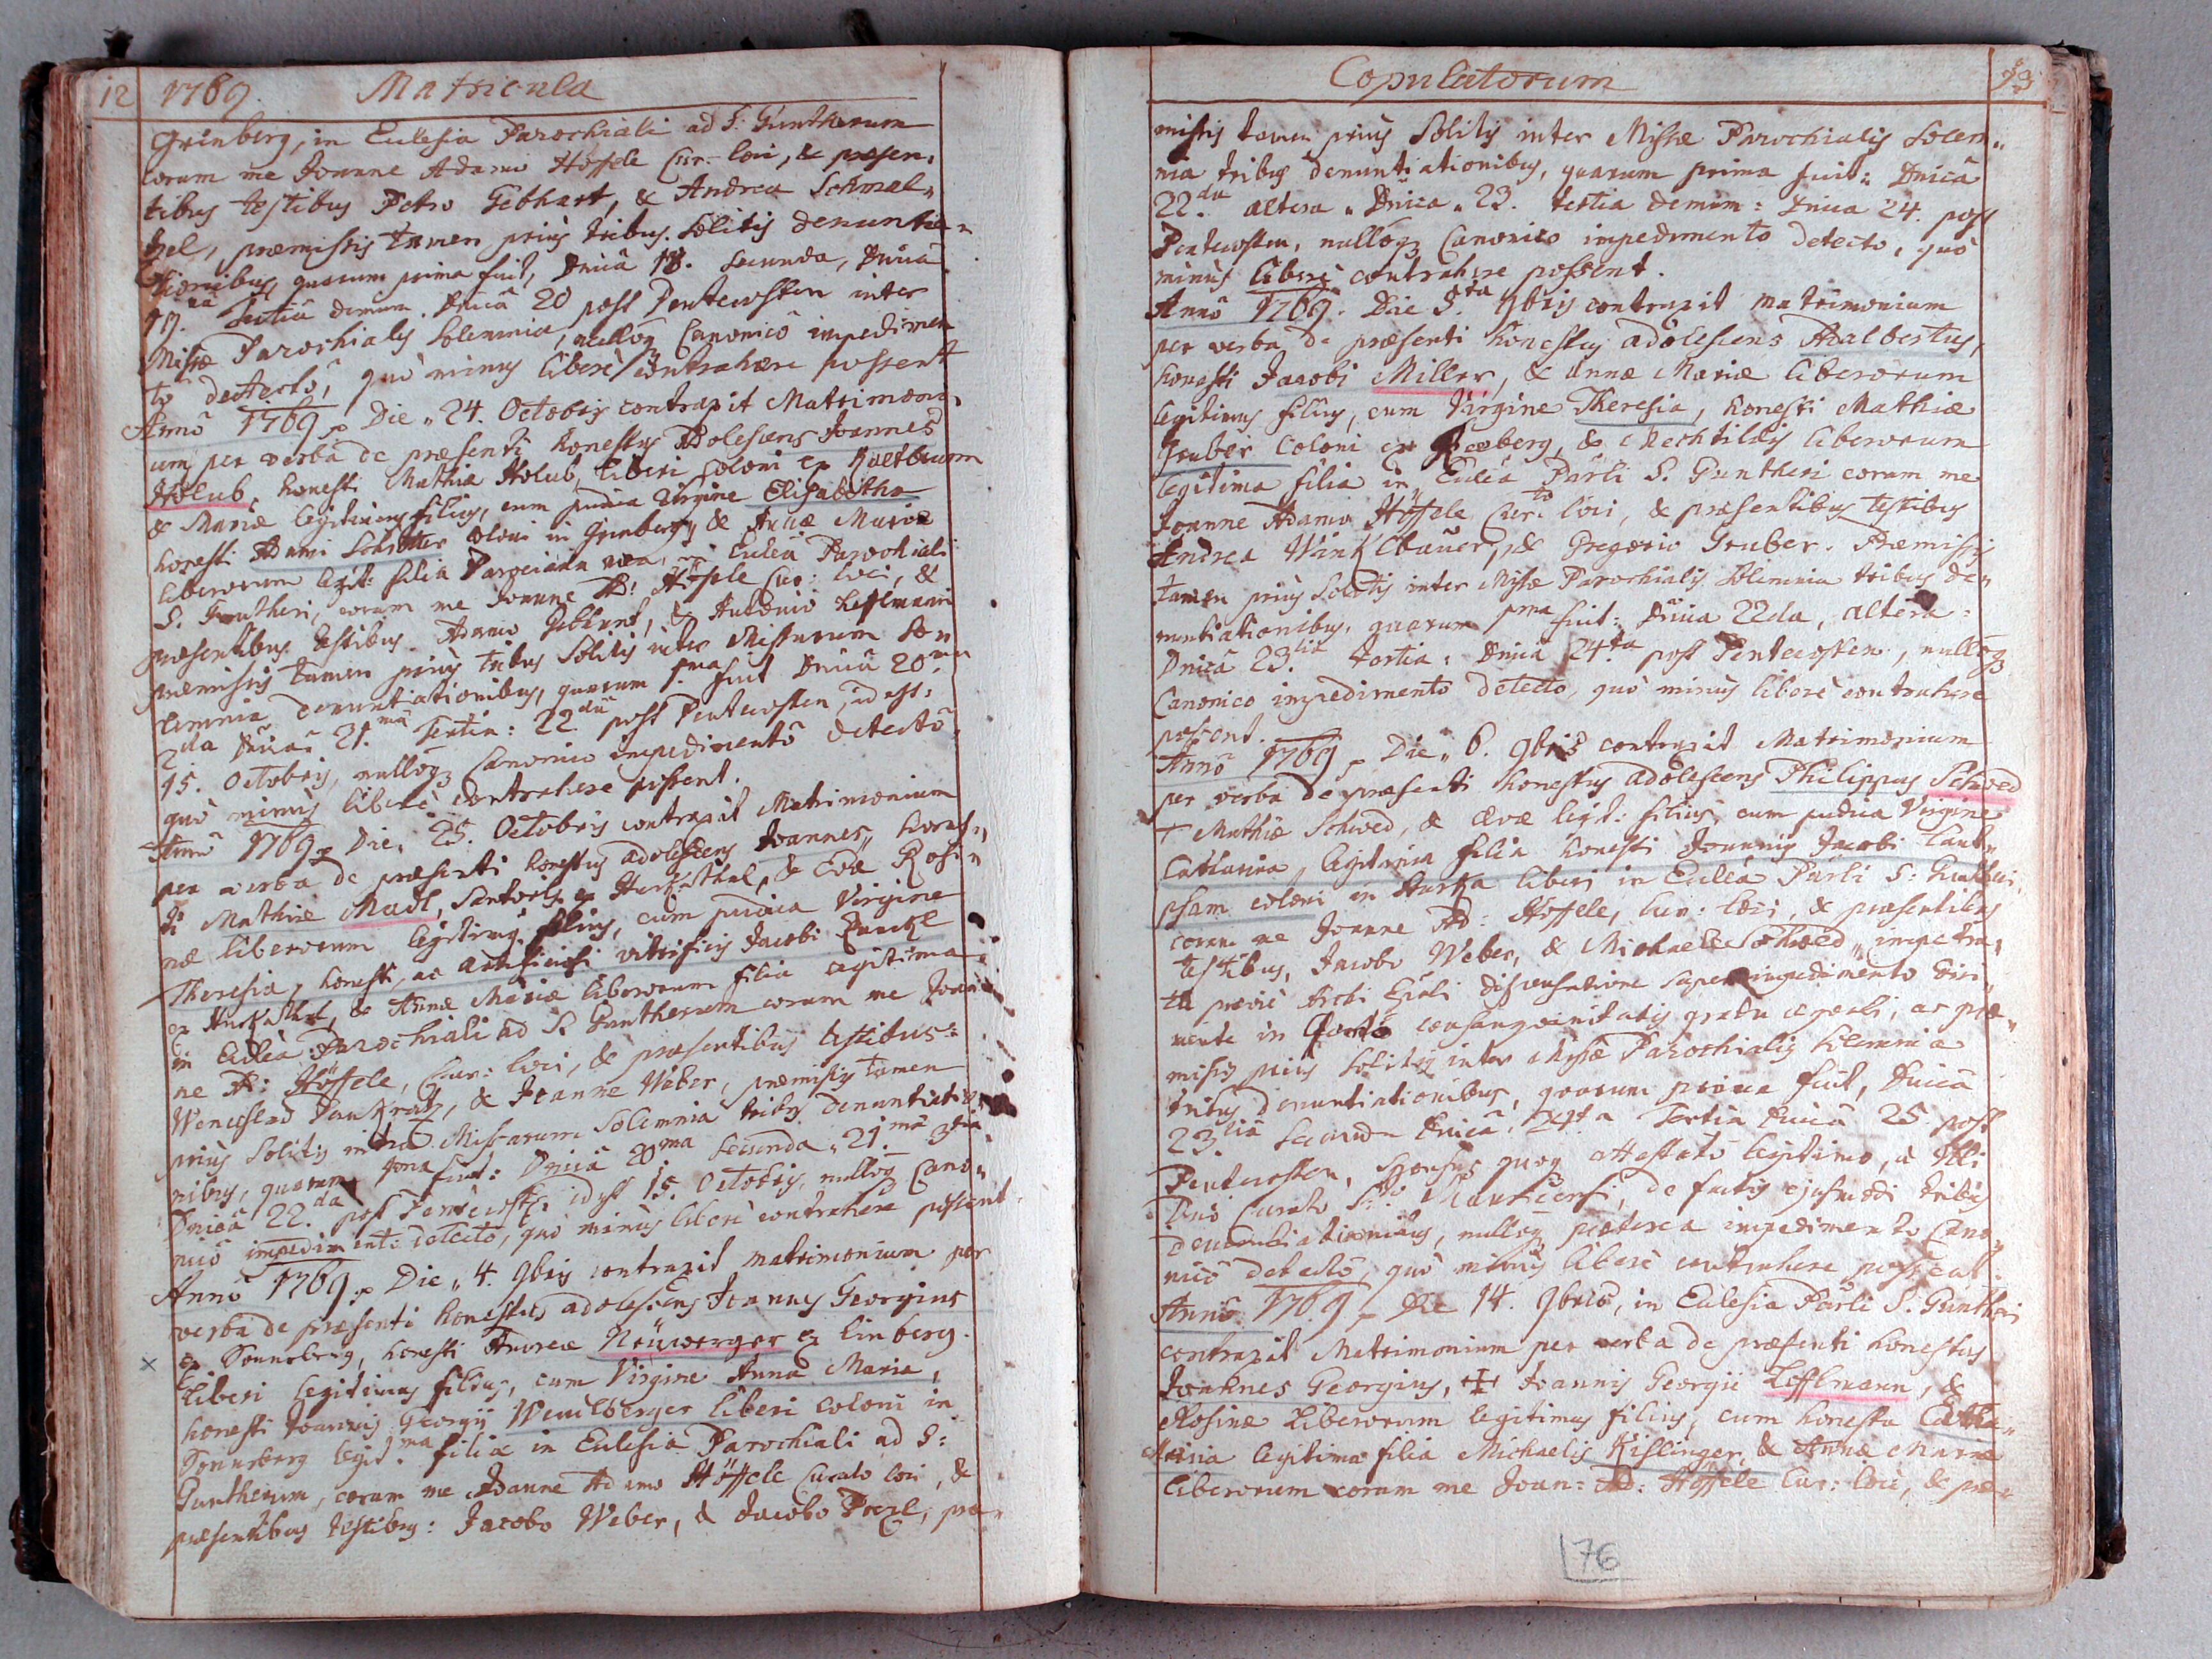 12 1769. Matricula
Grinberg, in Ecclesia Parochiali ad S: Guntherum
coram me Joanne Adamo Höffele Cur: loci, & præsen„
tibus testibus Petro Gebhart, & Andrea Schmel„
zel, præmissis tamen prius tribus solitis denuntia„
tionibus, quarum prima fuit, Dnicâ 18. secunda, Dnica
19.na tertia demum. Dnicâ 20 post Pentecosten inter
Missæ Parochialis Solemnia, nulloq Canonicô impedimen
tô detectô, quò minus liberè contrahere possent
Annô 1769 Die „ 24. Octobris contraxit Matrimoni„
um per verba de præsenti honestus Adolescens Joannes
Holub, honesti Mathiæ Holub, liberi coloni ex Kaltbrunn
& Mariæ legitimus filius, cum pudica Virgine Elisabetha
honesti Adami Schrötter coloni in Grinberg, & Annæ Mariæ
liberorum legit: filia Parociana mea, in Ecclea Parochiali
S. Guntheri, coram me Joanne Ad: Höffele Cur: loci, &
præsentibus testibus Adamo Gebhart, & Antonio Lefflmann
præmissis tamen priùs tribus Solitis inter Missarum So„
lemnia denuntiationibus, quarum 1.ma fuit Dnicâ 20.ma
2da Dnicâ 21.ma Tertia: 22.da post Pentecosten, id est:
15. Octobris, nulloq Canonico impedimentô detectô,
quò minùs liberè contrahere possent.
Annô 1769 Die „ 25. Octobris contraxit Matrimonium
per verba de præsenti honestus adolescens Joannes, hones„
ti Mathiæ Madl, Sartoris ex Hurkathal, & Evæ Rosi„
næ liberorum legitimus filius, cum pudica Virgine
Theresia, honesti, ac artificiosi vitrificis Jacobi
ex Hurkathal, & Annæ Mariæ liberorum filia legitima
in Ecclea Parochiali ad S. Guntherum coram me Joan„
ne A: Höffele, Cur: loci, & præsentibus testibus:
Wenceslao Pankratz, & Joanne Weber, præmissis tamen
priùs Solitis intra Missarum Solemnia tribus denuntiatio„
nibus, quarum 1ma fuit: Dnicâ 20ma Secunda „ 21.ma 3tia
Dnicâ 22.da post Pentecost: id est 15. Octobris, nulloq Cano„
nicô impedimentô detectô, quò minùs liberè contrahere possent.
Annô 1769 Die „ 4. 9bris contraxit matrimonium per
verba de præsenti honestus adolescens Joannes Georgius
ex Sonnberg, honesti Andreæ Neüwerger ex Einberg.
× Liberi legitimus filius, cum Virgine Anna Maria,
honesti Joannis Georgii Wendlberger liberi coloni in
Sonnberg legit.ma filia in Ecclesia Parochiali ad S:
Guntherum, coram me Joanne Adamo Höffele Curato loci, &
præsentibus testibus: Jacobo Weber, & Jacobo, præ„
Copulatorum 13
missis tamen priùs Solitis inter Missæ Parochialis Solem„
nia tribus denuntiationibus, quarum prima fuit: Dnicâ
22.da altera „ Dnica „ 23. tertia demum: Dnica 24. post
Pentecosten, nulloq Canonico impedimento detecto, quò
minùs liberè contrahere possent.
Annô 1769. Die 5.ta 9bris contraxit matrimonium
per verba de præsenti honestus adolescens Adalbertus,
honesti Jacobi Miller, & Annæ Mariæ liberorum
legitimus filius, cum Virgine Theresia, honesti Mathiæ
Gruber Coloni ex, & Mechtildis liberorum
legitima filia in Ecclea Parli S. Guntheri coram me
Joanne Adamo Höffele Cur:to loci, & præsentibus testibus
Andrea Winklbauer, & Gregorio Gruber. Præmissis
tamen priùs Solitis inter Missæ Parochialis Solemnia tribus de„
nuntiationibus, quarum 1ma fuit: Dnica 22da, altera:
Dnicâ 23.tia tertia: Dnica 24.ta post Pentecosten, nulloq
Canonico impedimento detecto, quò minùs liberè contrahere
possent.
Annô 1769 Die „ 6. 9bris contraxit Matrimonium
per verba de præsenti honestus adolescens Philippus Schwed
+ Mathiæ Schwed, & Evæ legit: filius, cum pudica Virgine
Catharina, legitima filia honesti Joannis Jacobi
coloni in Hurka liberi in Ecclea Parli S: Guntheri,
coram me Joanne Ad: Höffele, Cur: loci, & præsentibus
testibus, Jacobo Weber, & Michaele Schwed „ impetra„
ta præviè Archi Epali dispensatione super impedimento diri„
mente in Quarto consanguinitatis gradu æquali, ac præ„
missis priùs Solitis inter Missæ Parochialis Solemnia
tribus denuntiationibus, quarum prima fuit, Dnicâ
23.tia Secunda Dnicâ 24ta Tertia Dnicâ 25 post
Pentecosten, Sponsus quoq attestatô legitimo, à Illi
Dno Curato S.to Mauricensi, de factis ejusmodi tribus
denuntiationibus, nulloq præterea impedimento Cano„
nicô detectô, quò minùs liberè contrahere possent.
Annô 1769 Die 14. 9bris, in Ecclesia Parli S. Guntheri
contraxit Matrimonium per verba de præsenti honestus
Joannes Georgius, ✠ Joannis Georgii Lefflmann, &
Rosinæ Liberorum legitimus filius, cum honesta Catha„
rina legitima filia Michaelis Kislinger, & Annæ Mariæ
liberorum coram me Joan: Ad: Höffele Cur: loci, & præ„
76